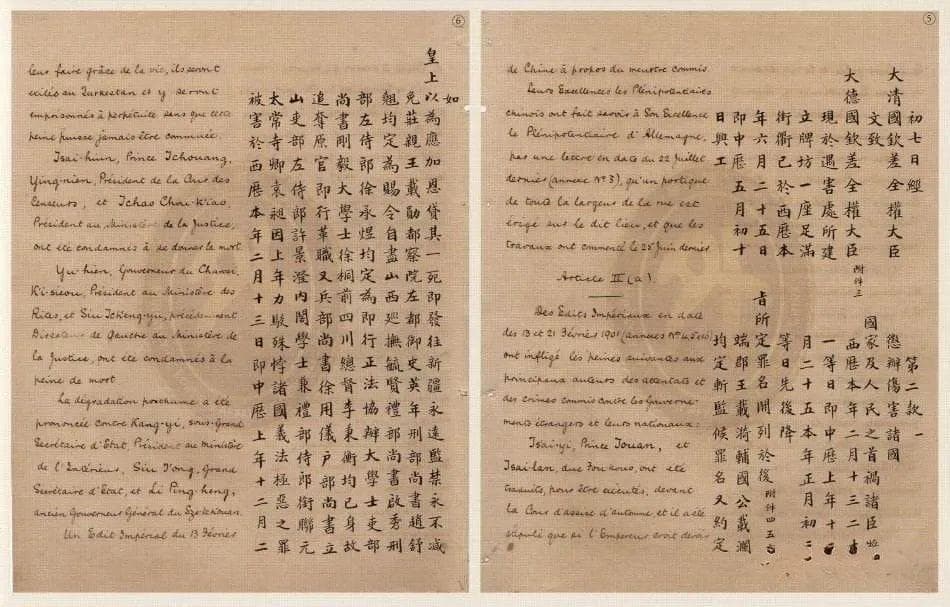 ⑤
de Chine à propos du meurtre commis.
Leurs Excellences les Plénipotentiaires
chinois ont fait savoir à Son Excellence
le Plénipotentiaire d'Allemagne,
par une lettre en date du 22 Juillet
dernier (annexe N° 3), qu'un portique
de toute la largeur de la rue est
érigé sur le dit lieu, et que les
travaux ont commencé le 25 Juin dernier
Article II (a)
Des Edits Impériaux en date
des 13 et 21 Février 1901 (annexes Nos 4, 5 et 6)
ont infligé les peines suivantes aux
principaux auteurs des attentats et
des crimes commis contre les Gouverne-
ments étrangers et leurs nationaux:
Tsai-yi, Prince Touan, et
Tsai-lan, duc Fou-kouo, ont été
traduits, pour être exécutés, devant
la Cour d'assise d'automne et il a été
stipulé que si l'Empereur croit devoir
初七日經
大清國欽差全權大臣
文致
大德國欽差全權大臣 附件三
現於遇害處所建
立牌坊一座足滿
街衢已於西歷本
年六月二十五日
即中歷五月初十
日興工
第二款 一
懲辦傷害諸國
國家及人民之首禍諸臣
西歷本年二月十三二十
一等日即中歷上年十二
月二十五本年正月初三
等日先後降
旨所定罪名開列於後 附件四五六
端郡王載漪輔國公載瀾
均定斬監候罪名又約定
⑥
leur faire grâce de la vie, ils seront
exilés au Turkestan et y seront
emprisonnés à perpétuité sans que cette
peine puisse jamais être commuée.
Tsai-hiun, Prince Tchouang,
Ying-nien, Président de la Cour des
Censeurs, et Tchao Chou-k'iao,
Président au Ministère de la Justice,
ont été condamnés à se donner la mort
Yu-hien, Gouverneur du Chansi,
K'i-sieou, Président au Ministère des
Rites, et Siu Tch'eng-yu, précédemment
Directeur de Gauche au Ministère de
la Justice, ont été condamnés à la
peine de mort
La dégradation posthume a été
prononcée contre Kang-yi, sous-Grand
Secrétaire d'Etat, Président au ministère
de l'Intérieur, Siu T'ong, Grand
Secrétaire d'Etat, et Li Ping-heng,
ancien Gouverneur Général du Sze-tch'ouan.
Un Edit Impérial du 13 Février
如
皇上以為應加恩貸其一死即發往新疆永遠監禁永不減
免莊親王載勛都察院左都御史英年刑部尚書趙舒
翹均定為賜令自盡山西巡撫毓賢禮部尚書啟秀刑
部左侍郎徐承煜均定為即行正法協辦大學士吏部
尚書剛毅大學士徐桐前四川總督李秉衡均已身故
追奪原官即行革職又兵部尚書徐用儀戶部尚書立
山吏部左侍郎許景澄內閣學士兼禮部侍郎銜聯元
太常寺卿袁昶因上年力駁殊悖諸國義法極惡之罪
被害於西歷本年二月十三日即中歷上年十二月二